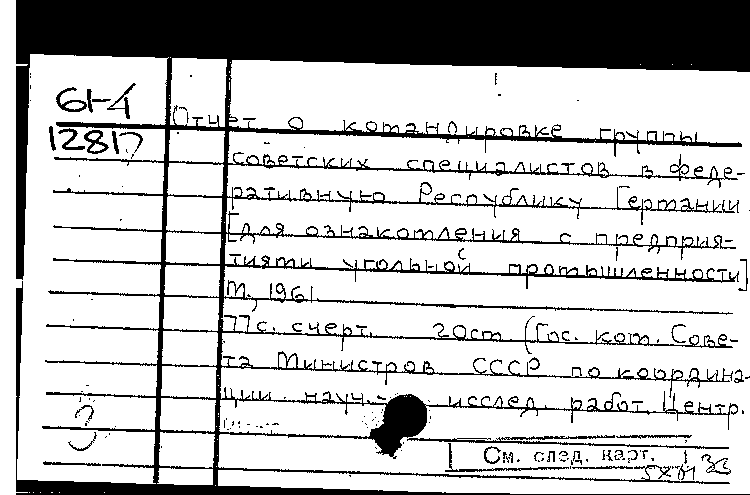 61-4
12817
Отчет о командировке группы
советских специалистов в Феде-
ративную Республику Германии
[для ознакомления с предприя-
тиями угольной промышленности]
М., 1961.
77с. с черт. 20см (Гос. ком. Сове-
та Министров СССР по координа-
ции науч.- исслед. работ. Центр.
См. след. карт.
3